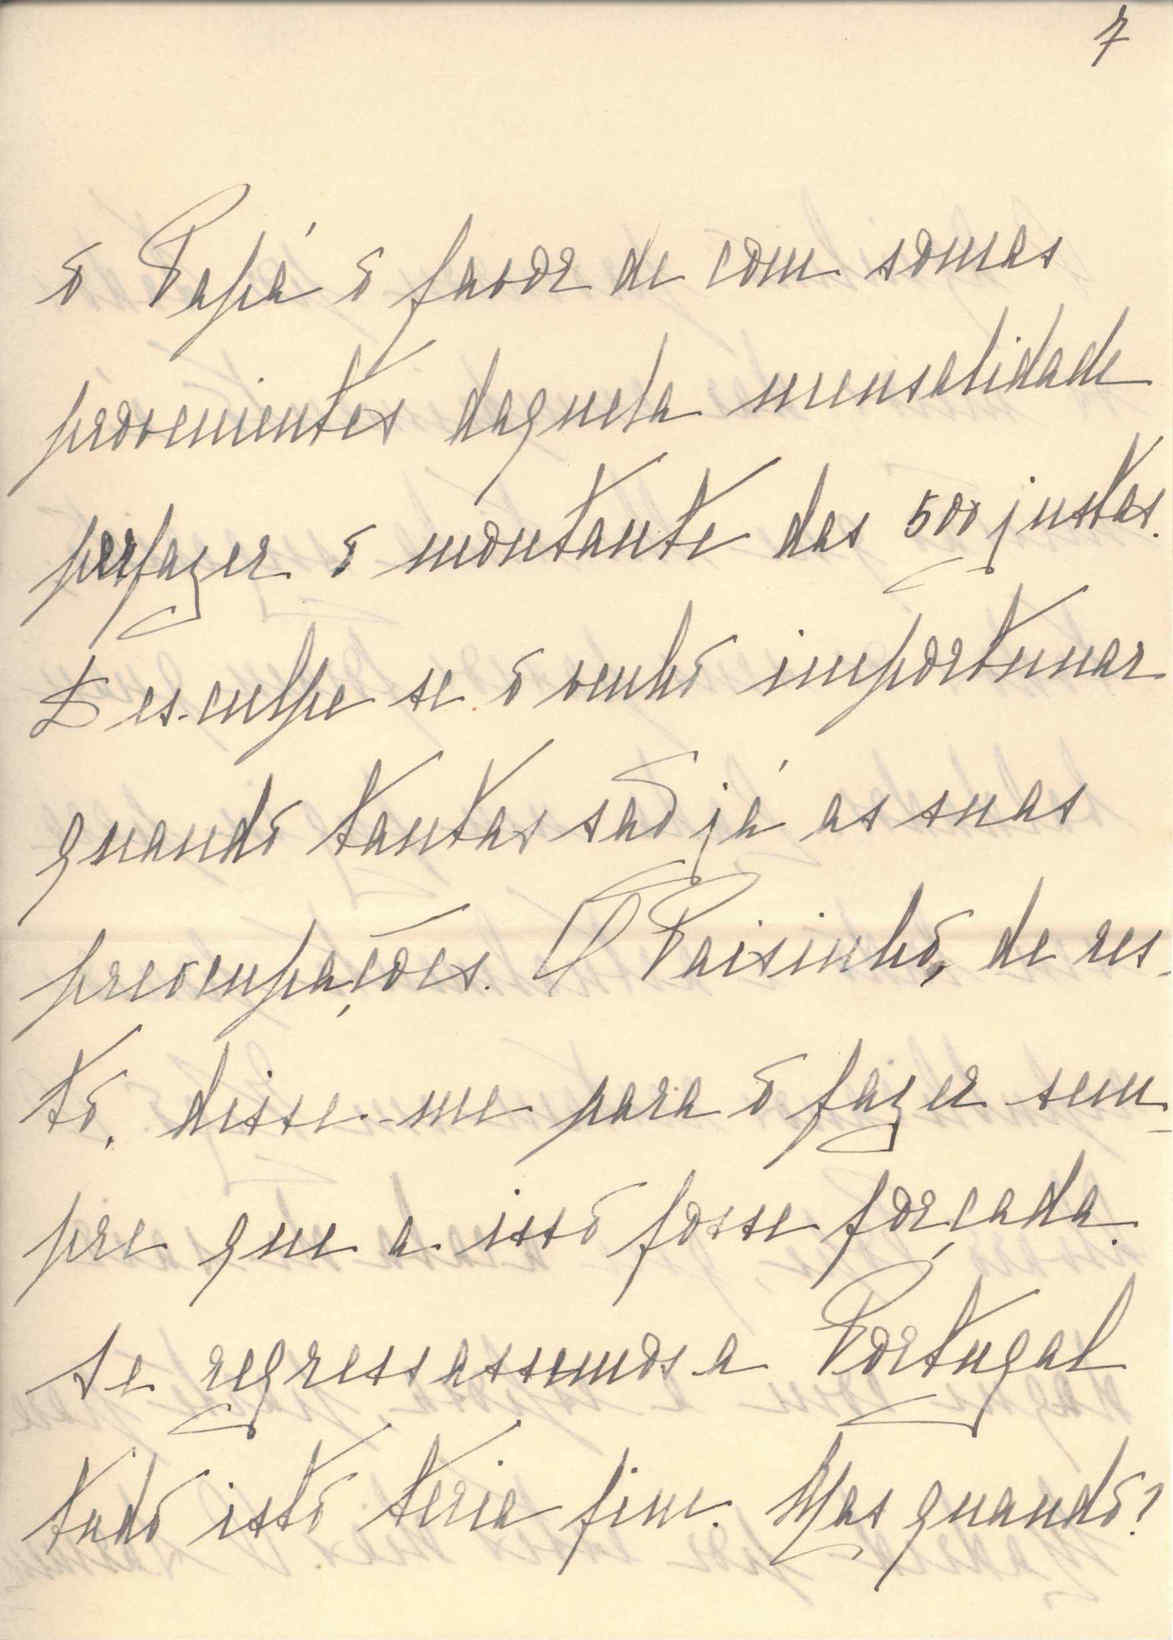 7
o Papá o favor de com somas
provenientes daquela mensalidade
perfazer o montante das 500 justas.
Desculpe se o venho importunar
quando tantas são já as suas
preocupações. O Paisinho, de res-
to, disse-me para o fazer sem-
pre que a isso fosse forçada.
Se regressassemos a Portugal
tudo isto teria fim. Mas quando?